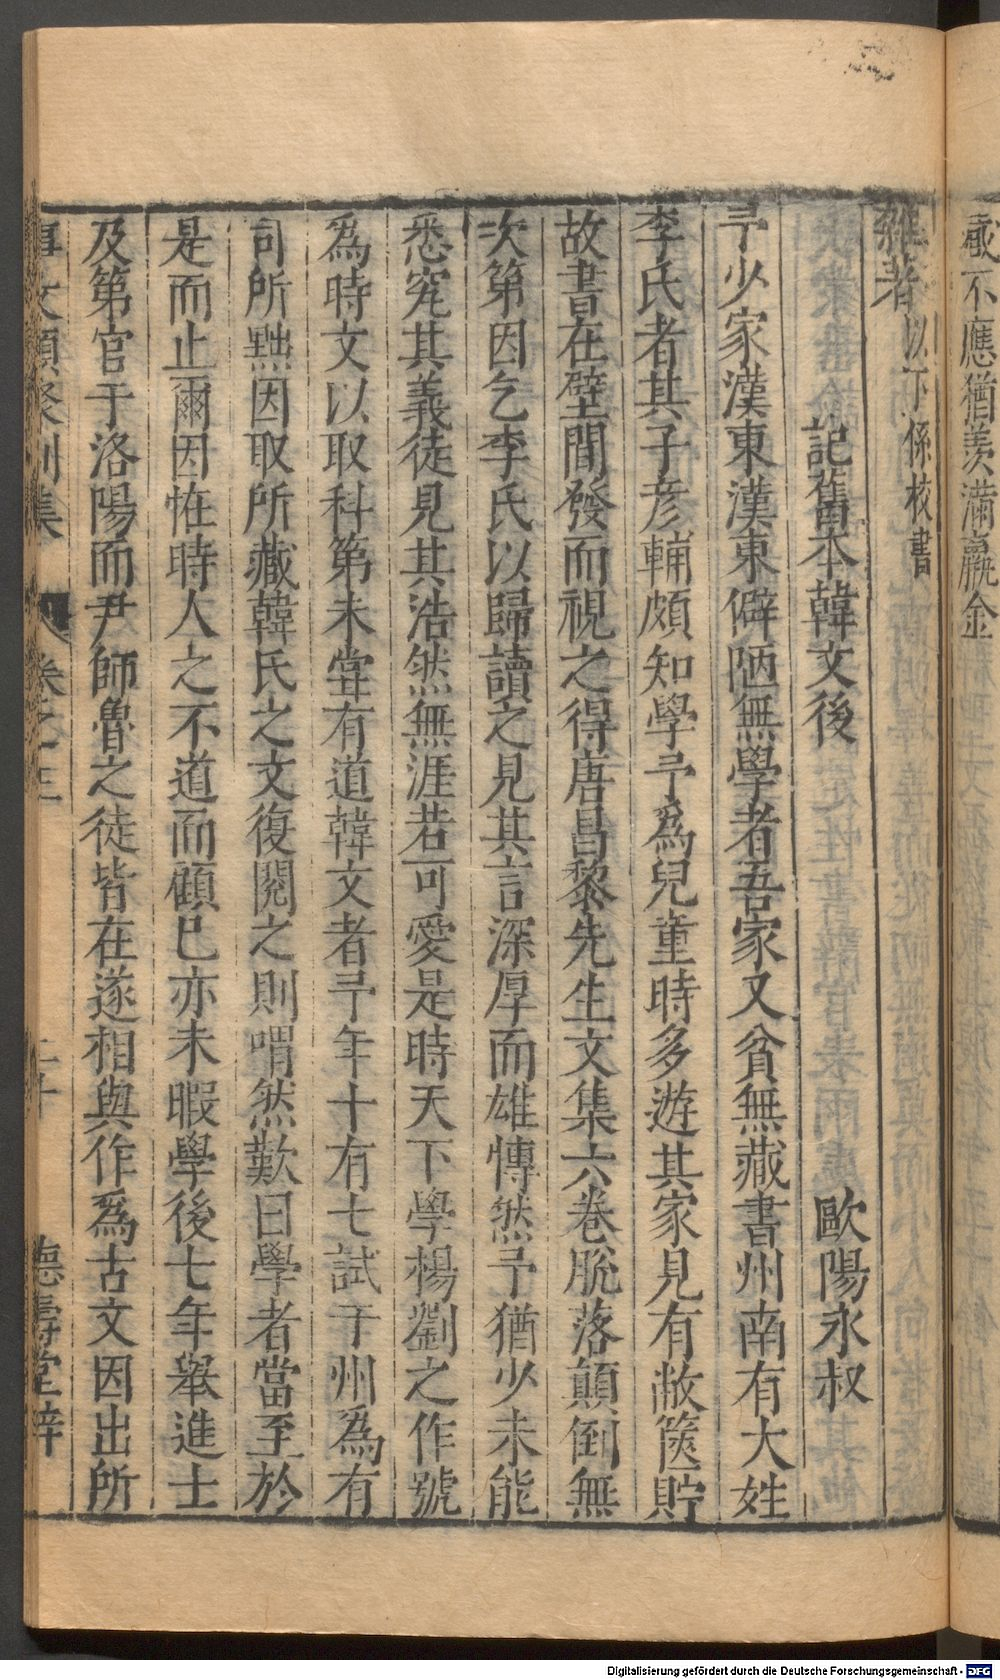 蔵不應猶羨滿籯金
雜著以下係校書
記舊本韓文後 歐陽永叔
予少家漢東漢東僻陋無學者吾家又貧無藏書州南有大姓
李氏者其子彦輔頗知學予爲兒童時多遊其家見有敝篋貯
故書在壁間發而視之得唐昌黎先生文集六卷脫落顛倒無
次第因乞李氏以歸讀之見其言深厚而雄愽然予猶少未能
悉究其義徒見其浩然無涯若可愛是時天下學楊劉之作號
爲時文以取科第未甞有道韓文者予年十有七試于州爲有
司所黜因取所藏韓氏之文復閱之則喟然歎曰學者當至於
是而止爾因恠時人之不道而顧已亦未暇學後七年舉進士
及第官于洛陽而尹師魯之徒皆在遂相與作爲古文因出所
事文類聚別集 卷之三 二十 德壽堂梓
Digitalisierung gefördert durch die Deutsche Forschungsgemeinschaft - DFG